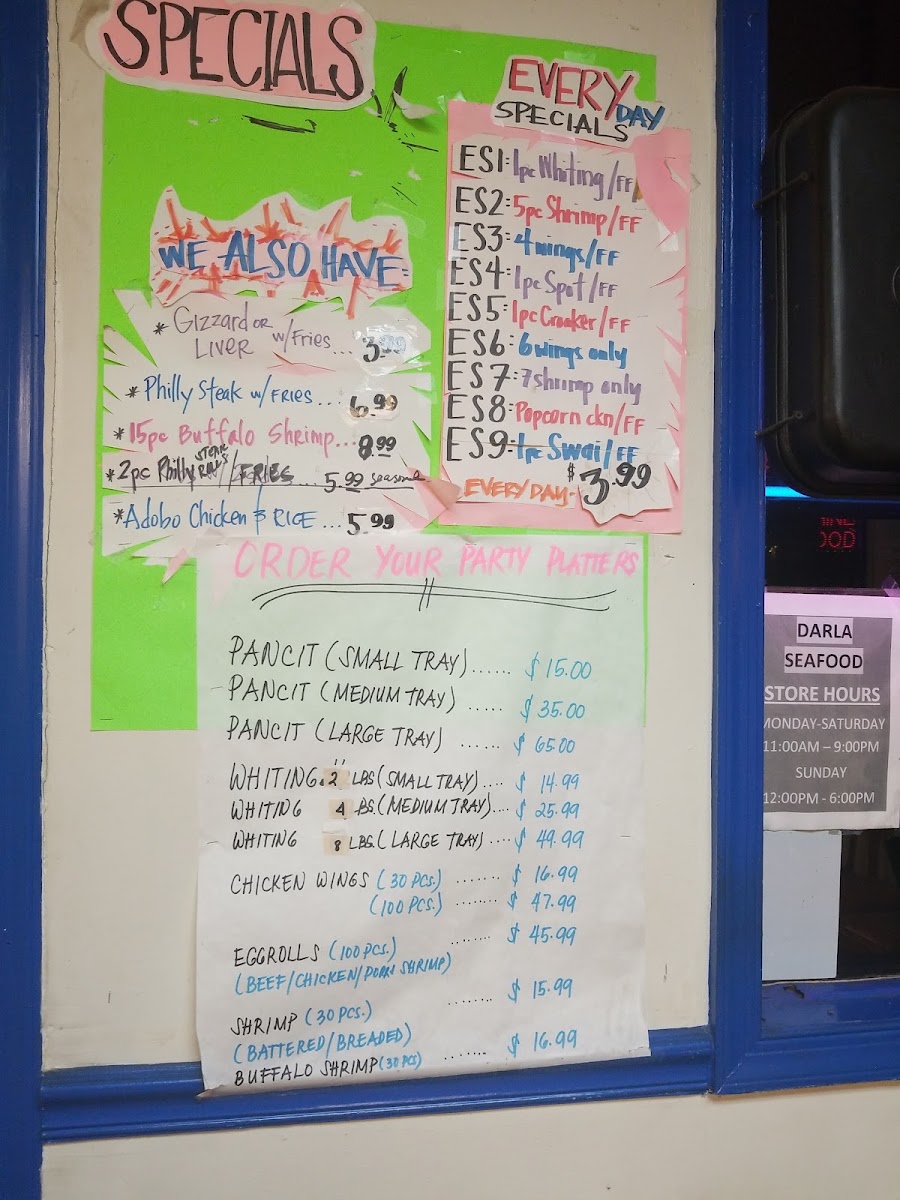 SPECIALS
WE ALSO HAVE
* Gizzard OR LIVER w/Fries... 3.99
* Philly Steak w/ FRIES... 6.99
* 15pc Buffalo Shrimp... 8.99
* 2pc Philly STEAK ROLLS / FRIES... 5.99
* Adobo Chicken & RICE... 5.99
EVERYDAY
SPECIALS
ES1: 1pc Whiting/FF
ES2: 5pc Shrimp/FF
ES3: 4 wings/FF
ES4: 1pc Spot/FF
ES5: 1pc Croaker/FF
ES6: 6 wings only
ES7: 7 shrimp only
ES8: Popcorn ckn/FF
ES9: 1pc Swai/FF
EVERYDAY- $3.99
ORDER YOUR PARTY PLATTERS
PANCIT (SMALL TRAY)...... $15.00
PANCIT (MEDIUM TRAY) ..... $35.00
PANCIT (LARGE TRAY) ...... $65.00
WHITING 2 LBS (SMALL TRAY).... $14.99
WHITING 4 LBS. (MEDIUM TRAY).... $25.99
WHITING 8 LBS. (LARGE TRAY) .... $49.99
CHICKEN WINGS (30 PCS.) ....... $16.99
(100 PCS.) ........ $47.99
EGGROLLS (100 PCS.) ........ $45.99
(BEEF/CHICKEN/PORK SHRIMP)
SHRIMP (30 PCS.) ........ $15.99
(BATTERED/BREADED)
BUFFALO SHRIMP (30 PCS) ....... $16.99
OOD
DARLA
SEAFOOD
STORE HOURS
MONDAY-SATURDAY
11:00AM – 9:00PM
SUNDAY
12:00PM - 6:00PM